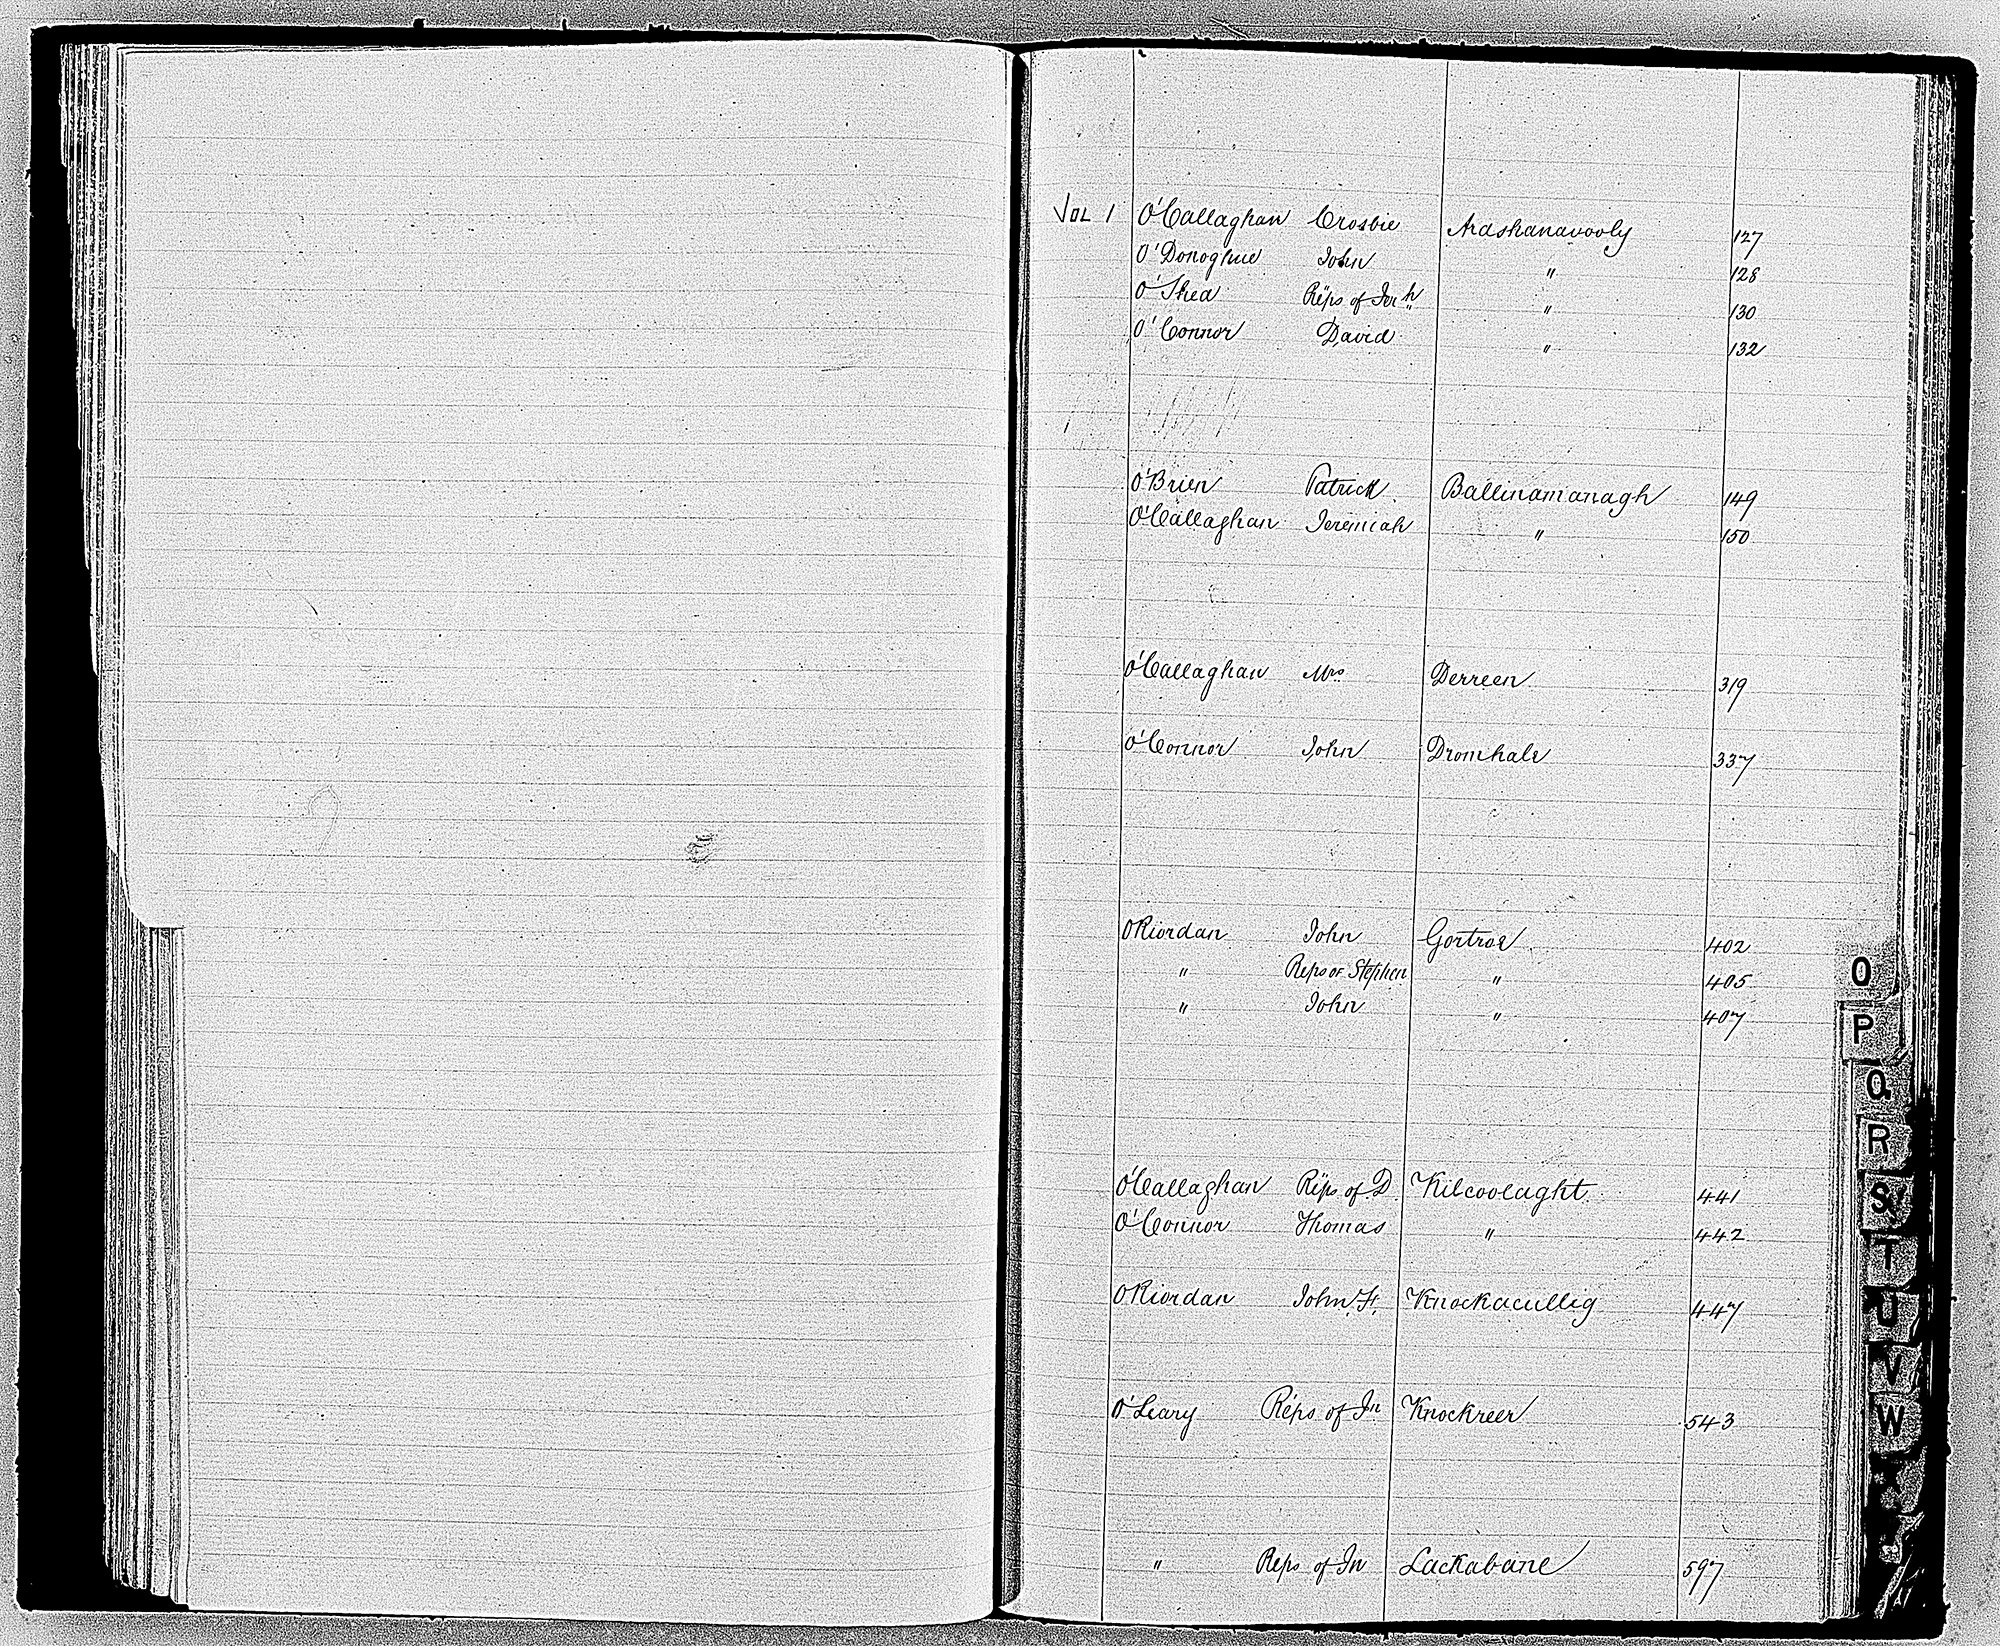 VOL 1 O'Callaghan Crosbie Ardshanavooly 127
O'Donoghue John " 128
O'Shea Reps of Jerh " 130
O'Connor David " 132
O'Brien Patrick Ballinamanagh 149
O'Callaghan Jeremiah " 150
O'Callaghan Mrs Derreen 319
O'Connor John Dromhale 337
ORiordan John Gortroe 402
" Reps of Stephen " 405
" John " 407
O'Callaghan Reps of D Kilcoolaght 441
O'Connor Thomas " 442
ORiordan John F. Knockacullig 447
O'Leary Reps of Jn Knockreer 543
" Reps of Jn Lackabane 597
O
P
Q
R
S
T
U
V
W
X